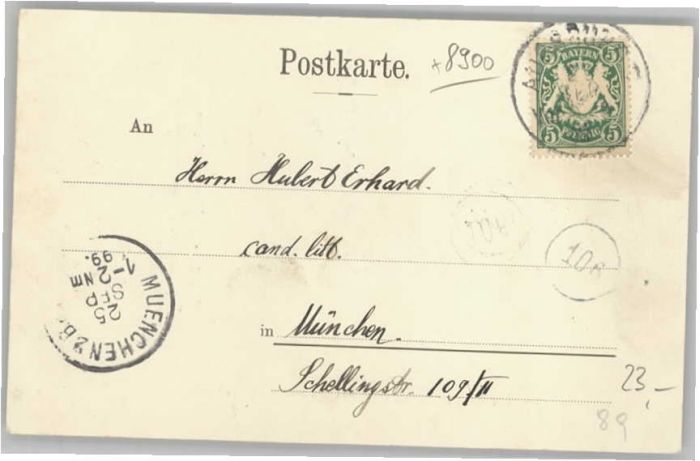 Postkarte.
+8900
5 BAYERN 5
5 PFENNIG 5
An
Herrn Hubert Erhard.
cand. litt.
in München.
Schellingstr. 109/II
MUENCHEN 2 B.
25
SEP
1-2 NM
99.
23,-
89